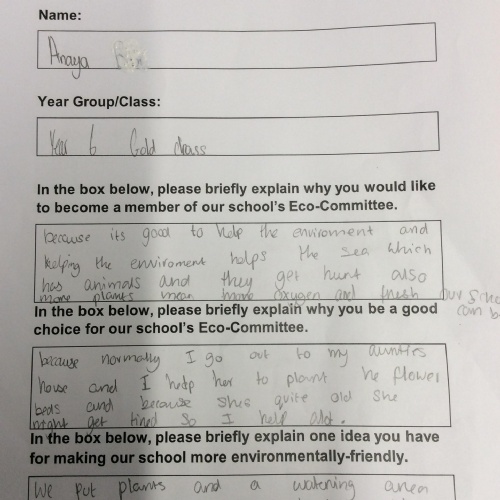 Name:
Anaya
Year Group/Class:
Year 6 Gold class
In the box below, please briefly explain why you would like
to become a member of our school's Eco-Committee.
because its good to help the enviroment and
helping the enviroment helps the sea which
has animals and they get hurt also
more plants mean more oxygen and fresh our
can b
In the box below, please briefly explain why you be a good
choice for our school's Eco-Committee.
because normally I go out to my aunties
house and I help her to plant he flower
beds and because shes quite old she
might get tired so I help alot.
In the box below, please briefly explain one idea you have
for making our school more environmentally-friendly.
We put plants and a watering area